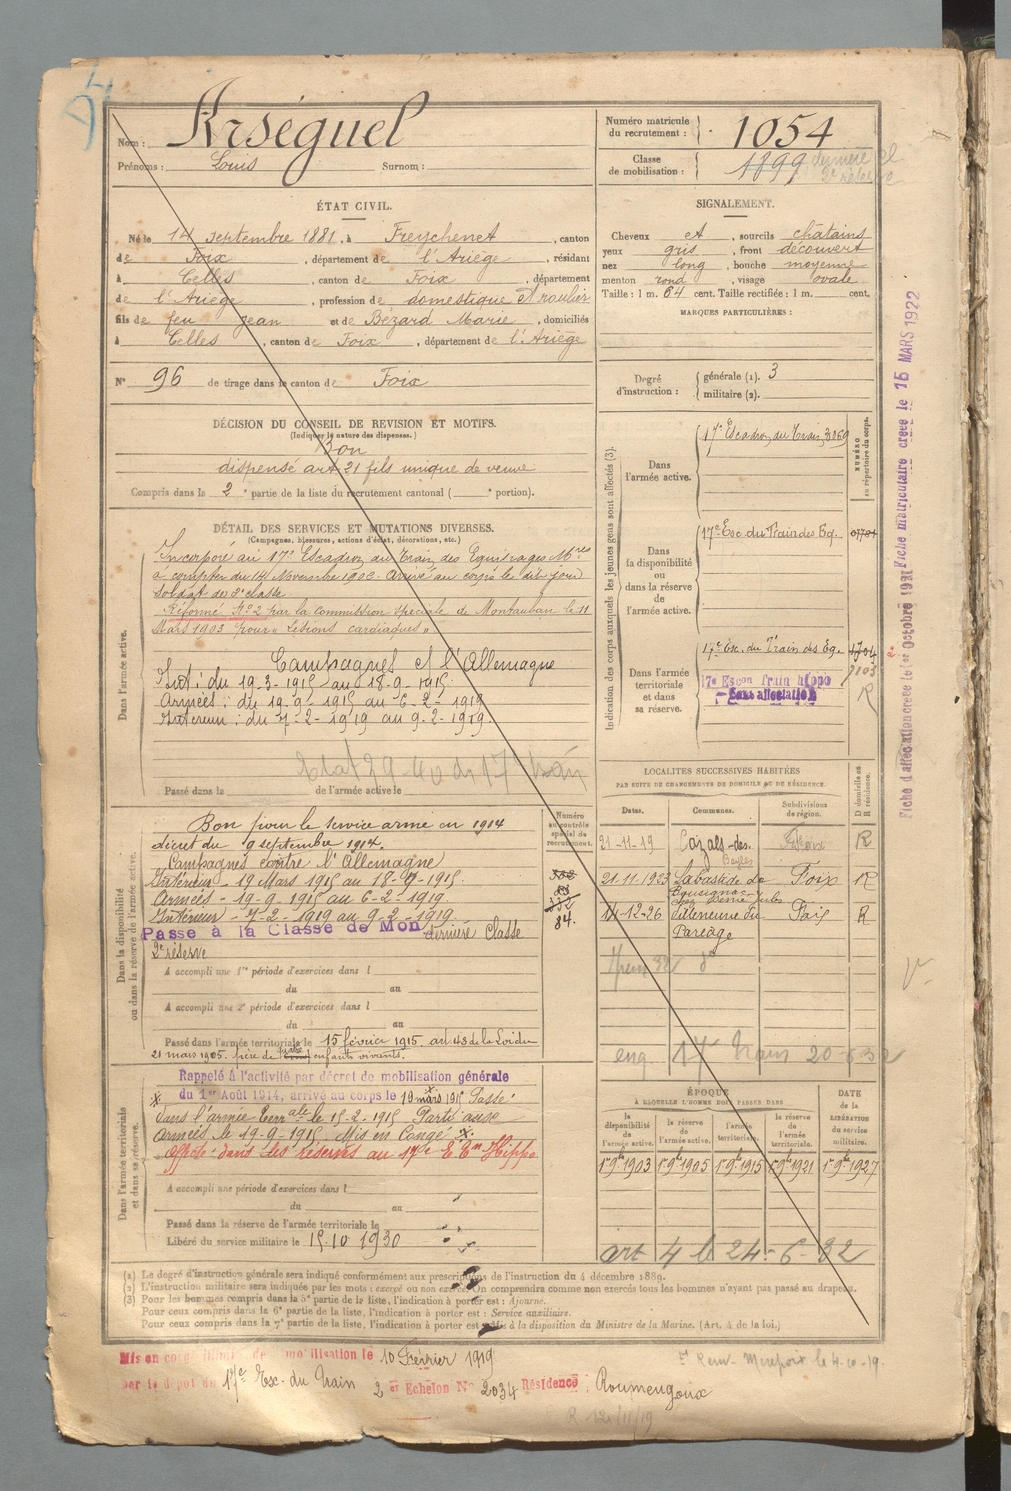 Nom : Arséguel
Prénoms : Louis Surnom :
Numéro matricule du recrutement : 1054
Classe de mobilisation : 1899 dernière cl
2e réserve
ÉTAT CIVIL.
Né le 14 septembre 1881, à Freychenet, canton
de Foix, département de l'Ariège, résidant
à Celles, canton de Foix, département
de l'Ariège, profession de domestique
fils de feu Jean et de Bézard Marie, domiciliés
à Celles, canton de Foix, département de l'Ariège
N° 96 de tirage dans le canton de Foix
SIGNALEMENT.
Cheveux et, sourcils châtains
yeux gris, front découvert
nez long, bouche moyenne
menton rond, visage ovale
Taille : 1 m. 64 cent. Taille rectifiée : 1 m. cent.
MARQUES PARTICULIÈRES :
Degré d'instruction : générale (1). 3
militaire (2).
DÉCISION DU CONSEIL DE REVISION ET MOTIFS.
(Indiquer la nature des dispenses.)
Bon
dispensé art 21 fils unique de veuve
Compris dans la 2e partie de la liste du recrutement cantonal ( e portion).
DÉTAIL DES SERVICES ET MUTATIONS DIVERSES.
(Campagnes, blessures, actions d'éclat, décorations, etc.)
Dans l'armée active.
Incorporé au 17e Escadron du Train des Equipages Mres
à compter du 14 Novembre 1902. Arrivé au corps le dit jour
soldat de 2e classe
Réformé No 2 par la Commission spéciale de Montauban le 11
Mars 1903 pour « Lésions cardiaques »
Campagnes et l'Allemagne
Int : du 19-3-1915 au 18-9-1915.
Armées : du 19-9-1915 au 6-2-1919
Intérieur : du 7-2-1919 au 9-2-1919.
Passé dans la de l'armée active le
Indication des corps auxquels les jeunes gens sont affectés (3).
NUMÉRO au répertoire du corps.
Dans l'armée active. 17e Escadron du Train 3069
Dans la disponibilité ou dans la réserve de l'armée active. 17e Esc. du Train des Eq.
Dans l'armée territoriale et dans sa réserve. 17e Esc. du Train des Eq. 1704
17e Escon Train hippo 7103
Sans affectation R
Fiche d'affectation créée le 1er Octobre 1921 Fiche matriculaire créée le 15 MARS 1922
LOCALITÉS SUCCESSIVES HABITÉES
PAR SUITE DE CHANGEMENTS DE DOMICILE OU DE RÉSIDENCE.
Dates. Communes. Subdivisions de région. D domicile ou R résidence.
21-11-19 Cazals-des-Bayles Foix R
21-11-1923 Labastide de Bousignac Foix R
11-12-26 Villeneuve du Paréage Foix R
eng. 17e Train 20-6-32
Dans la disponibilité ou dans la réserve de l'armée active.
Numéro au contrôle spécial du recrutement.
Bon pour le service armé en 1914
décret du 9 septembre 1914.
Campagnes contre l'Allemagne
Intérieur - 19 Mars 1915 au 18-9-1915.
Armées - 19-9-1915 au 6-2-1919.
Intérieur - 7-2-1919 au 9-2-1919.
84.
Passé à la Classe de Mon dernière Classe
2e réserve
A accompli une 1re période d'exercices dans l
du au
A accompli une 2e période d'exercices dans l
du au
Passé dans l'armée territoriale le 15 février 1915. art 48 de la Loi du
21 mars 1905. père de enfants vivants.
Dans l'armée territoriale et dans sa réserve.
Rappelé à l'activité par décret de mobilisation générale
du 1er Août 1914, arrivé au corps le 19 mars 1915 Passé
dans l'armée Terrale le 15-2-1915 Parti aux
Armées le 19-9-1915. Mis en Congé
Affecté dans les réserves au 17e E. Tin Hippo
A accompli une période d'exercices dans l
du au
Passé dans la réserve de l'armée territoriale le
Libéré du service militaire le 15.10 1930
ÉPOQUE
A LAQUELLE L'HOMME DOIT PASSER DANS
la disponibilité de l'armée active. la réserve de l'armée active. l'armée territoriale. la réserve de l'armée territoriale.
DATE de la LIBÉRATION du service militaire.
1er 9bre 1903 1er 9bre 1905 1er 9bre 1915 1er 9bre 1921 1er 9bre 1927
art 4 l 24-6-32
(1) Le degré d'instruction générale sera indiqué conformément aux prescriptions de l'instruction du 4 décembre 1889.
(2) L'instruction militaire sera indiquée par les mots : exercé ou non exercé. On comprendra comme non exercés tous les hommes n'ayant pas passé au drapeau.
(3) Pour les hommes compris dans la 5e partie de la liste, l'indication à porter est : Ajourné.
Pour ceux compris dans la 6e partie de la liste, l'indication à porter est : Service auxiliaire.
Pour ceux compris dans la 7e partie de la liste, l'indication à porter est : Mis à la disposition du Ministre de la Marine. (Art. 4 de la loi.)
Mis en congé illimité de démobilisation le 10 Février 1919
par le dépôt du 17e Esc. du Train 2 er Echelon No 2034 Résidence : Roumengoux
Mirepoix le 4-10-19.
R. 12/11/19